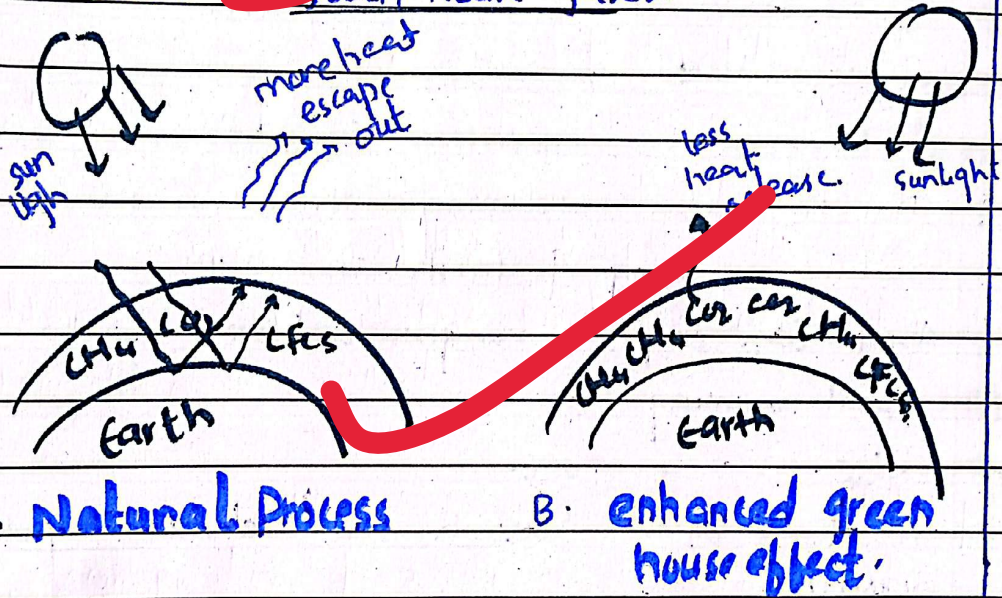 more heat
escape
out
sun
ligh
less
heat
sunlight
CH4 CO2 CFCs
Earth
CH4 CH4 CO2 CO2 CH4 CFCs
Earth
Natural Process
B. enhanced green
house effect.